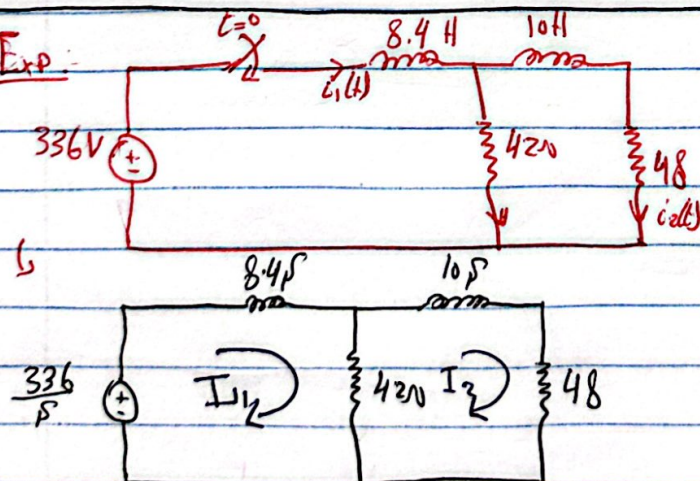 Exp. t=0 8.4 H 10H
i₁(t)
336V + - 42Ω 48
i₂(t)
8.4s 10s
336/s + - I₁ 42Ω I₂ 48